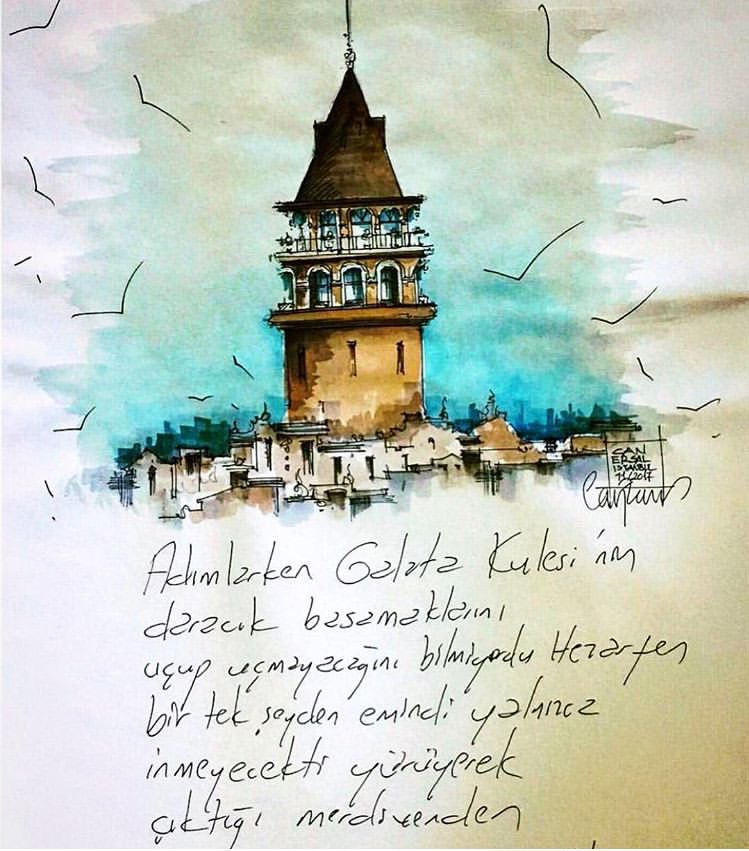 CAN
ERSAL
ISTANBUL
11/2017
Adımlarken Galata Kulesi'nin
daracık basamaklarını
uçup uçmayacağını bilmiyordu Hezarfen
bir tek şeyden emindi yalnızca
inmeyecekti yürüyerek
çıktığı merdivenden